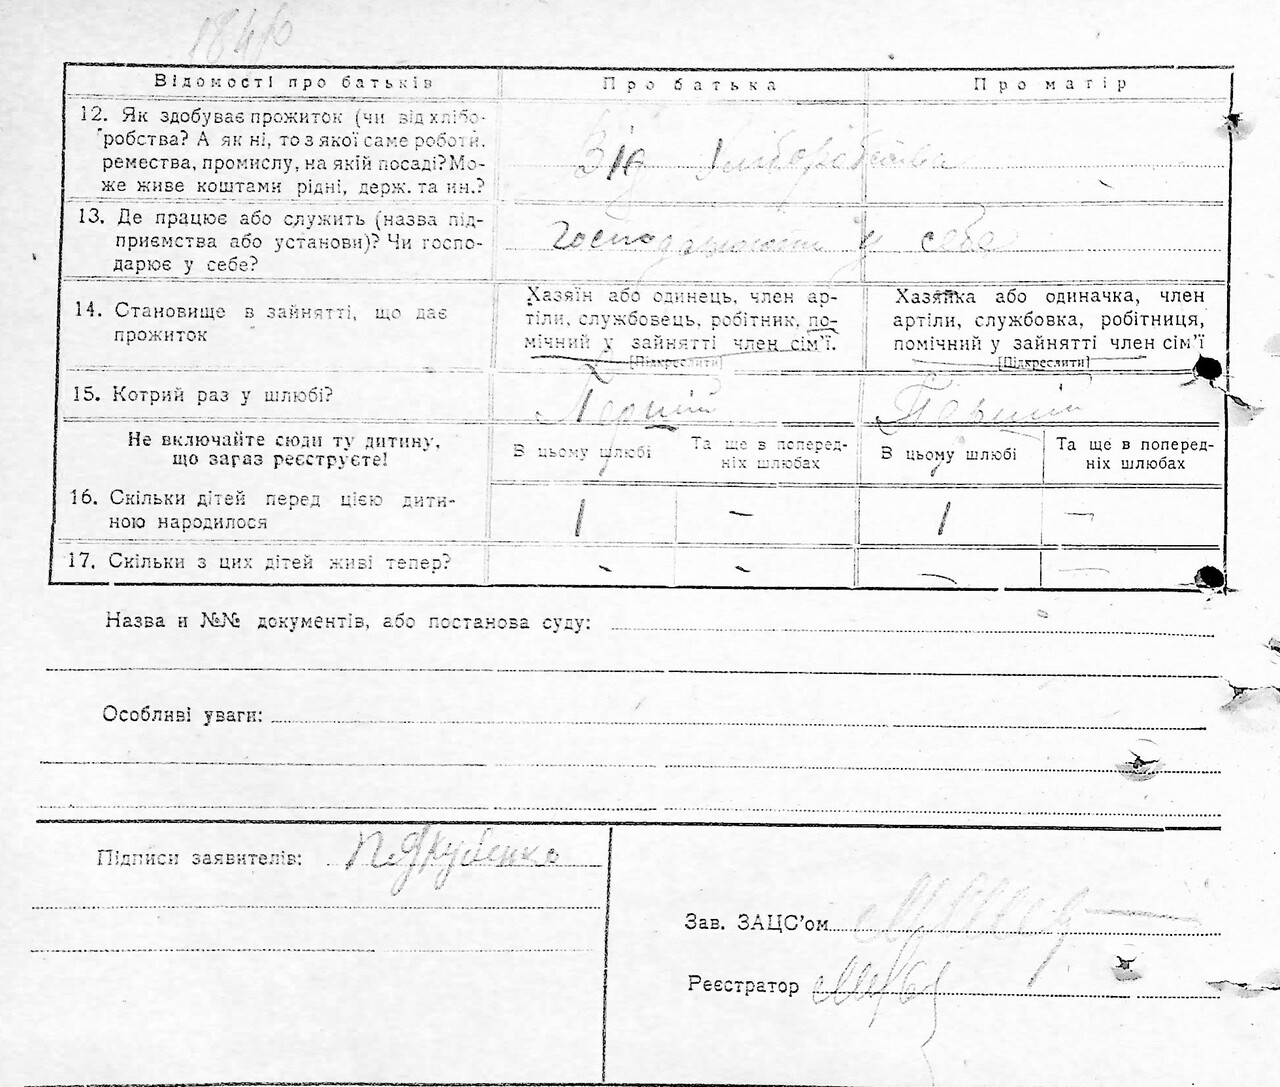 184б
Відомості про батьків
Про батька
Про матір
12. Як здобуває прожиток (чи від хлібо-
робства? А як ні, то з якої саме роботи,
ремества, промислу, на якій посаді? Мо-
же живе коштами рідні, держ. та ин.?
Від хліборобства
13. Де працює або служить (назва під-
приємства або установи)? Чи госпо-
дарює у себе?
Господарюють у себе
14. Становище в зайнятті, що дає
прожиток
Хазяїн або одинець, член ар-
тіли, службовець, робітник, по-
мічний у зайнятті член сім'ї.
[Підкреслити]
Хазяйка або одиначка, член
артіли, службовка, робітниця,
помічний у зайнятті член сім'ї
[Підкреслити]
15. Котрий раз у шлюбі?
Перший
Перший
Не включайте сюди ту дитину,
що зараз реєструєте!
В цьому шлюбі
Та ще в поперед-
ніх шлюбах
В цьому шлюбі
Та ще в поперед-
ніх шлюбах
16. Скільки дітей перед цією дити-
ною народилося
1 - 1 -
17. Скільки з цих дітей живі тепер?
- - - -
Назва и №№ документів, або постанова суду:
Особливі уваги:
Підписи заявителів: П. Якубенко
Зав. ЗАЦС'ом
Реєстратор